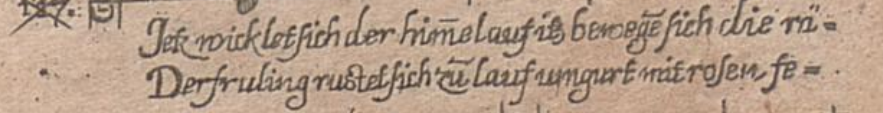 Jetz wicklet sich der him̄el auf itz bewegē sich die rä=
Der fruling rustet sich zū lauf umgurt mit rosen, fe=